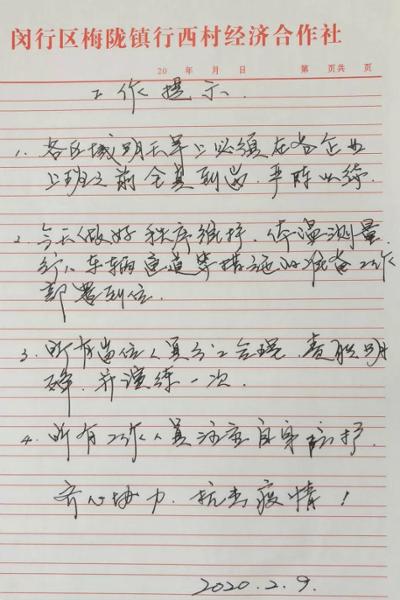 闵行区梅陇镇行西村经济合作社
20 年 月 日 第 页共 页
工作提示
1. 各区域明天早上必须在各企业
上班之前全员到岗,严阵以待.
2. 今天做好秩序维护、体温测量、
行人车辆通道等措施的准备工作
部署到位.
3. 所有岗位人员分工合理、责职明
确,并演练一次.
4. 所有工作人员注重自身防护.
齐心协力、抗击疫情!
2020.2.9.